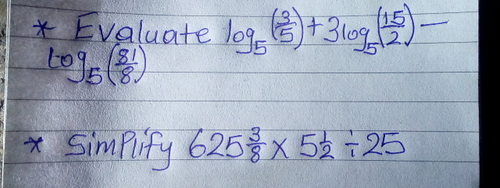 * Evaluate log₅(3/5)+3log₅(15/2)-
log₅(81/8)
* Simplify 625 3/8 x 5 1/2 ÷ 25